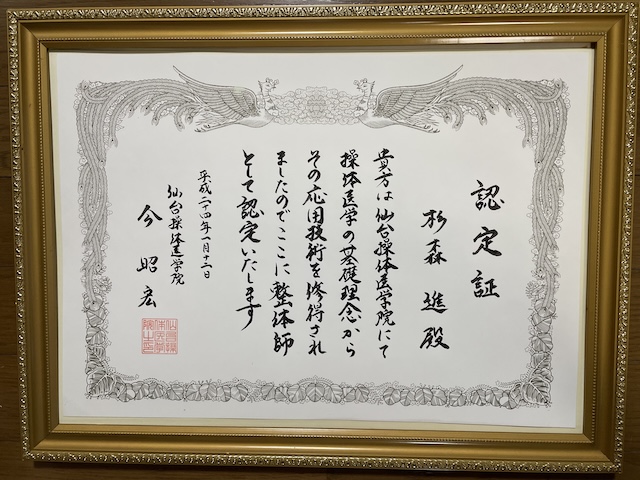 認定証
杉森 進殿
貴方は仙台操体医学院にて
操体医学の基礎理念から
その応用技術を修得され
ましたのでここに整体師
として認定いたします
平成二十四年一月十二日
仙台操体医学院
今 昭宏